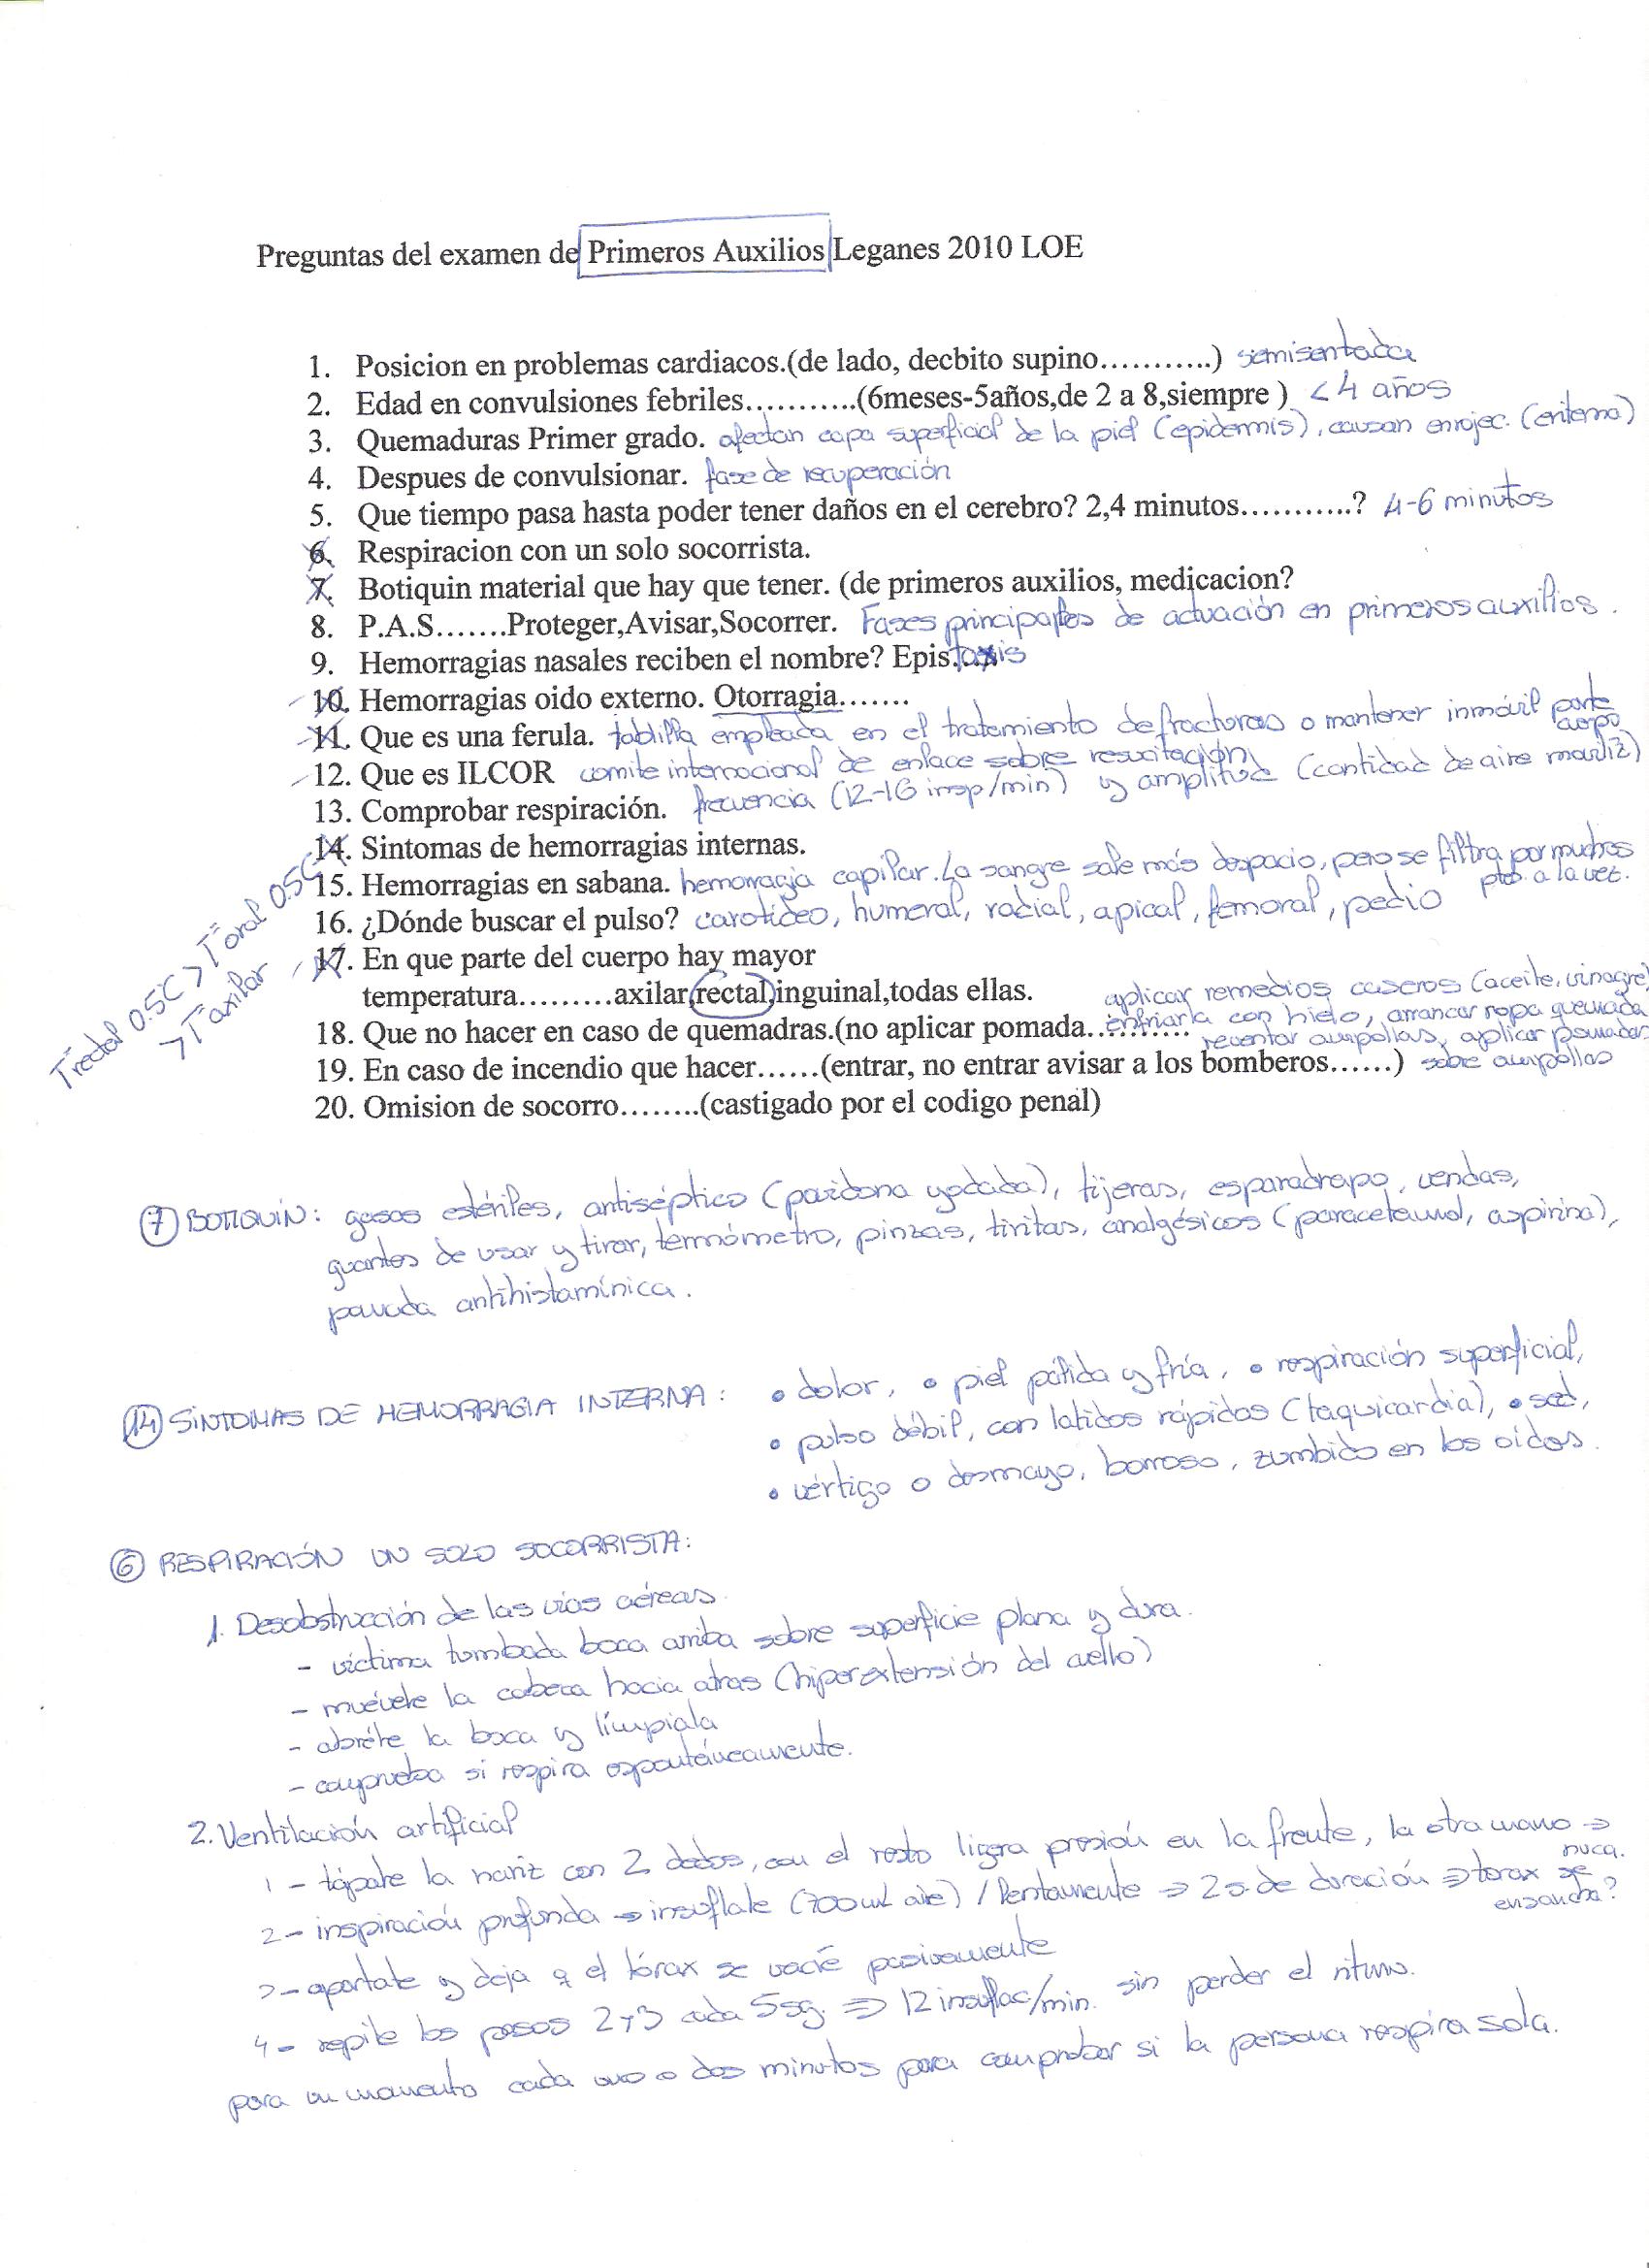 Preguntas del examen de Primeros Auxilios Leganes 2010 LOE
1. Posicion en problemas cardiacos.(de lado, decbito supino...........) semisentada
2. Edad en convulsiones febriles...........(6meses-5años,de 2 a 8,siempre ) < 4 años
3. Quemaduras Primer grado. afectan capa superficial de la piel (epidermis), causan enrojec. (eritema)
4. Despues de convulsionar. fase de recuperación
5. Que tiempo pasa hasta poder tener daños en el cerebro? 2,4 minutos...........? 4-6 minutos
6. Respiracion con un solo socorrista.
7. Botiquin material que hay que tener. (de primeros auxilios, medicacion?
8. P.A.S.......Proteger,Avisar,Socorrer. Fases principales de actuación en primeros auxilios.
9. Hemorragias nasales reciben el nombre? Epis.taxis
10. Hemorragias oido externo. Otorragia.......
11. Que es una ferula. tablilla empleada en el tratamiento de fracturas o mantener inmóvil parte cuerpo
12. Que es ILCOR comite internacional de enlace sobre resucitación
13. Comprobar respiración. frecuencia (12-16 irsp/min) y amplitud (cantidad de aire moviliz)
14. Sintomas de hemorragias internas.
15. Hemorragias en sabana. hemorragia capilar. La sangre sale más despacio, pero se filtra por muchos ptos. a la vez.
16. ¿Dónde buscar el pulso? carotídeo, humeral, radial, apical, femoral, pedio
17. En que parte del cuerpo hay mayor
temperatura.........axilar,rectal,inguinal,todas ellas.
Tª rectal 0.5C > Tª oral 0.5C
> Tª axilar
18. Que no hacer en caso de quemadras.(no aplicar pomada.......... aplicar remedios caseros (aceite, vinagre)
enfriarla con hielo, arrancar ropa quemada
reventar ampollas, aplicar pomadas
sobre ampollas
19. En caso de incendio que hacer......(entrar, no entrar avisar a los bomberos......)
20. Omision de socorro........(castigado por el codigo penal)
7 BOTIQUÍN: gasas estériles, antiséptico (povidona yodada), tijeras, esparadrapo, vendas,
guantes de usar y tirar, termómetro, pinzas, tiritas, analgésicos (paracetamol, aspirina),
pomada antihistamínica.
14 SÍNTOMAS DE HEMORRAGIA INTERNA: • dolor, • piel pálida y fría, • respiración superficial,
• pulso débil, con latidos rápidos (taquicardia), • sed,
• vértigo o desmayo, borroso, zumbido en los oídos.
6 RESPIRACIÓN UN SOLO SOCORRISTA:
1. Desobstrucción de las vías aéreas.
- víctima tumbada boca arriba sobre superficie plana y dura.
- muévele la cabeza hacia atras (hiperextensión del cuello)
- abréte la boca y límpiala
- comprueba si respira espontáneamente.
2. Ventilación artificial
1 - tápate la nariz con 2 dedos, con el resto ligera presión en la frente, la otra mano ⇒ nuca.
2 - inspiración profunda → insuflate (700ml aire) / lentamente ⇒ 2s. de duración ⇒ torax se ensancha?
3 - apartate y deja q el tórax se vacíe pasivamente
4 - repite los pasos 2 y 3 cada 5sg. ⇒ 12 insuflac/min. sin perder el ritmo.
para un momento cada uno o dos minutos para comprobar si la persona respira sola.